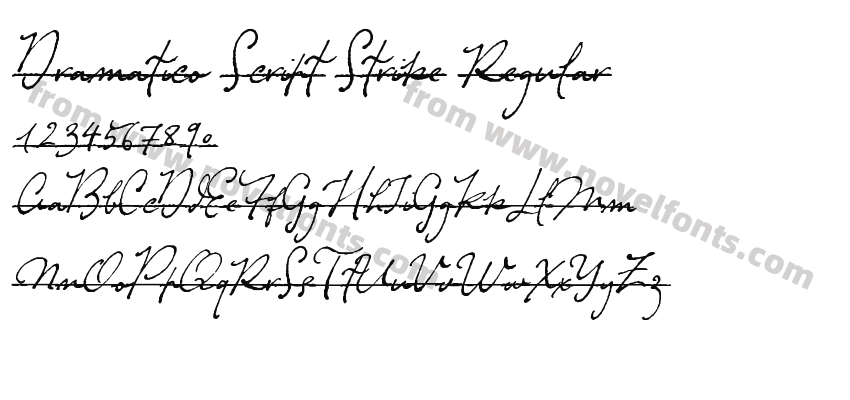 Dramatico Script Strike Regular
1234567890
AaBbCcDdEeFfGgHhIiGgKkLlMm
NnOoPpQqRrSsTtUuVvWwXxYyZz
from www.novelfonts.com
from www.novelfonts.com